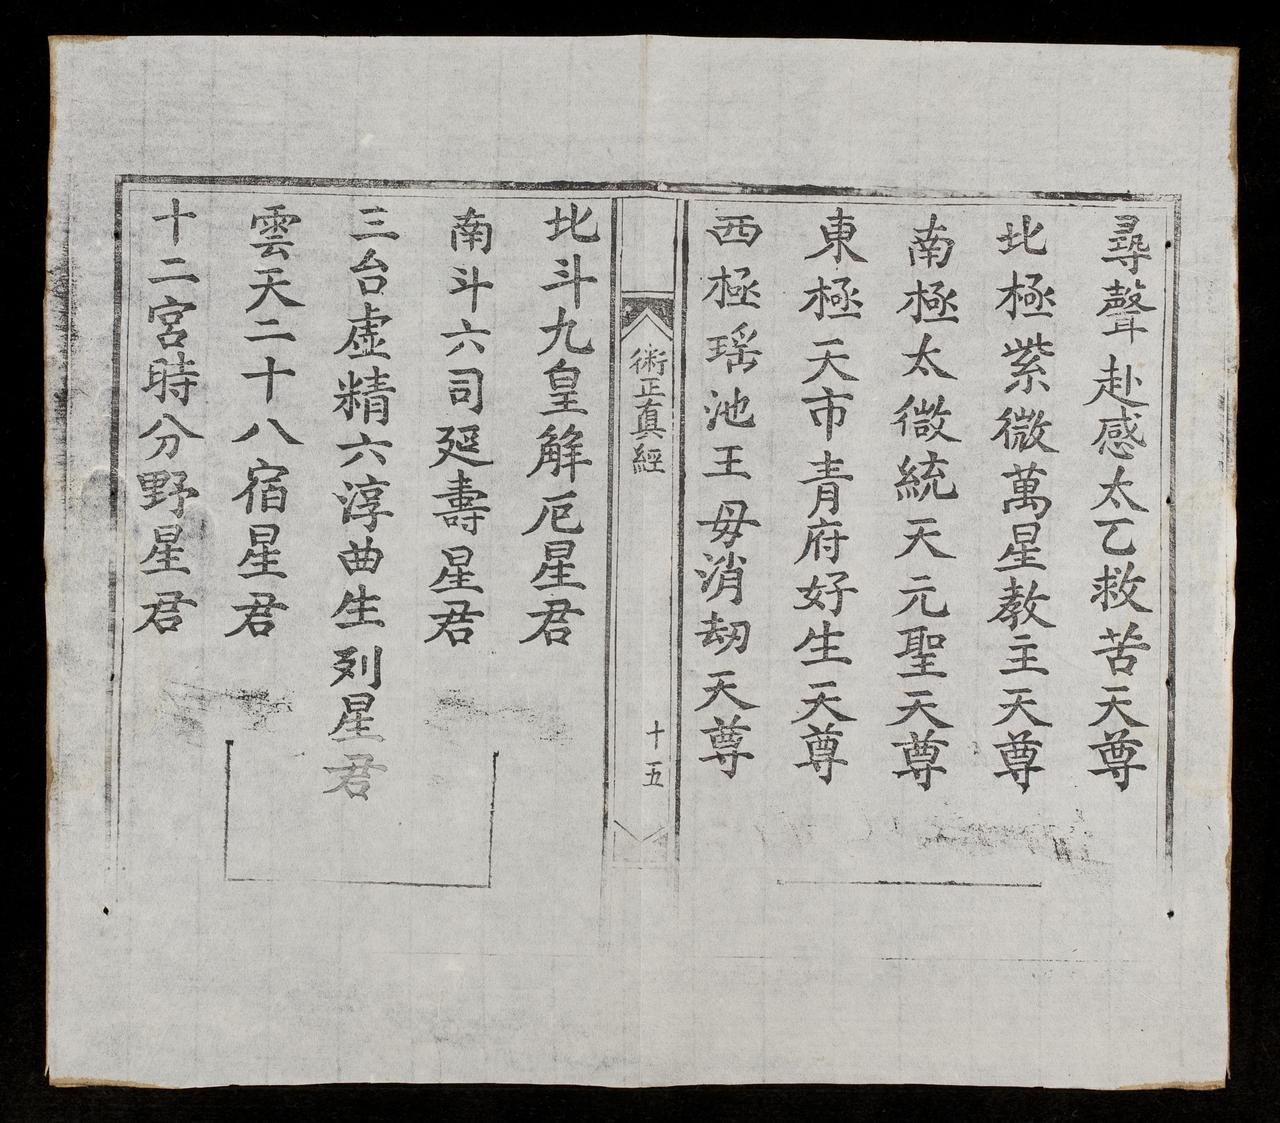 尋聲赴感太乙救苦天尊
北極紫微萬星教主天尊
南極太微統天元聖天尊
東極天市青府好生天尊
西極瑶池王毋消刧天尊
術正真經
十五
北斗九皇觧厄星君
南斗六司延壽星君
三台虚精六淳曲生列星君
雲天二十八宿星君
十二宮時分野星君